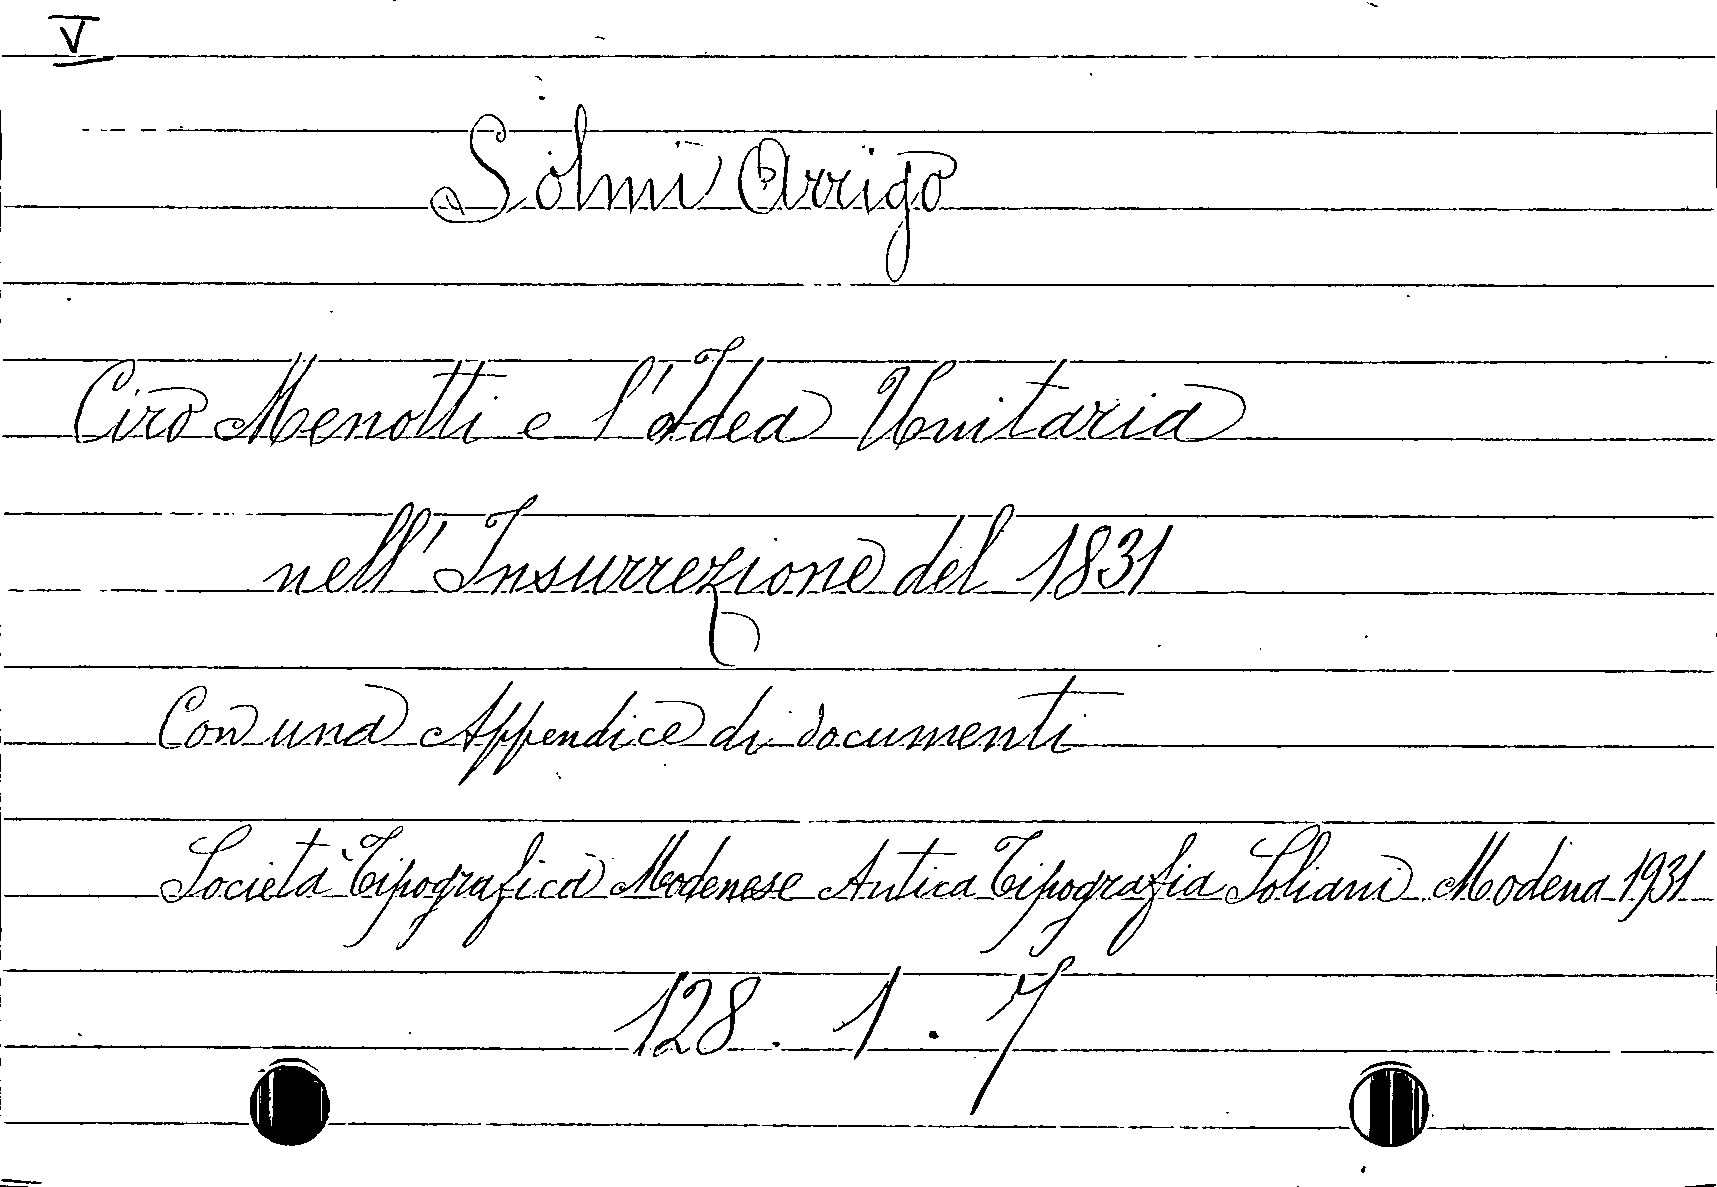 V
Solmi Arrigo
Ciro Menotti e l'Idea Unitaria
nell'Insurrezione del 1831
Con una Appendice di documenti
Società Tipografica Modenese Antica Tipografia Soliani Modena 1931
128. 1. 7